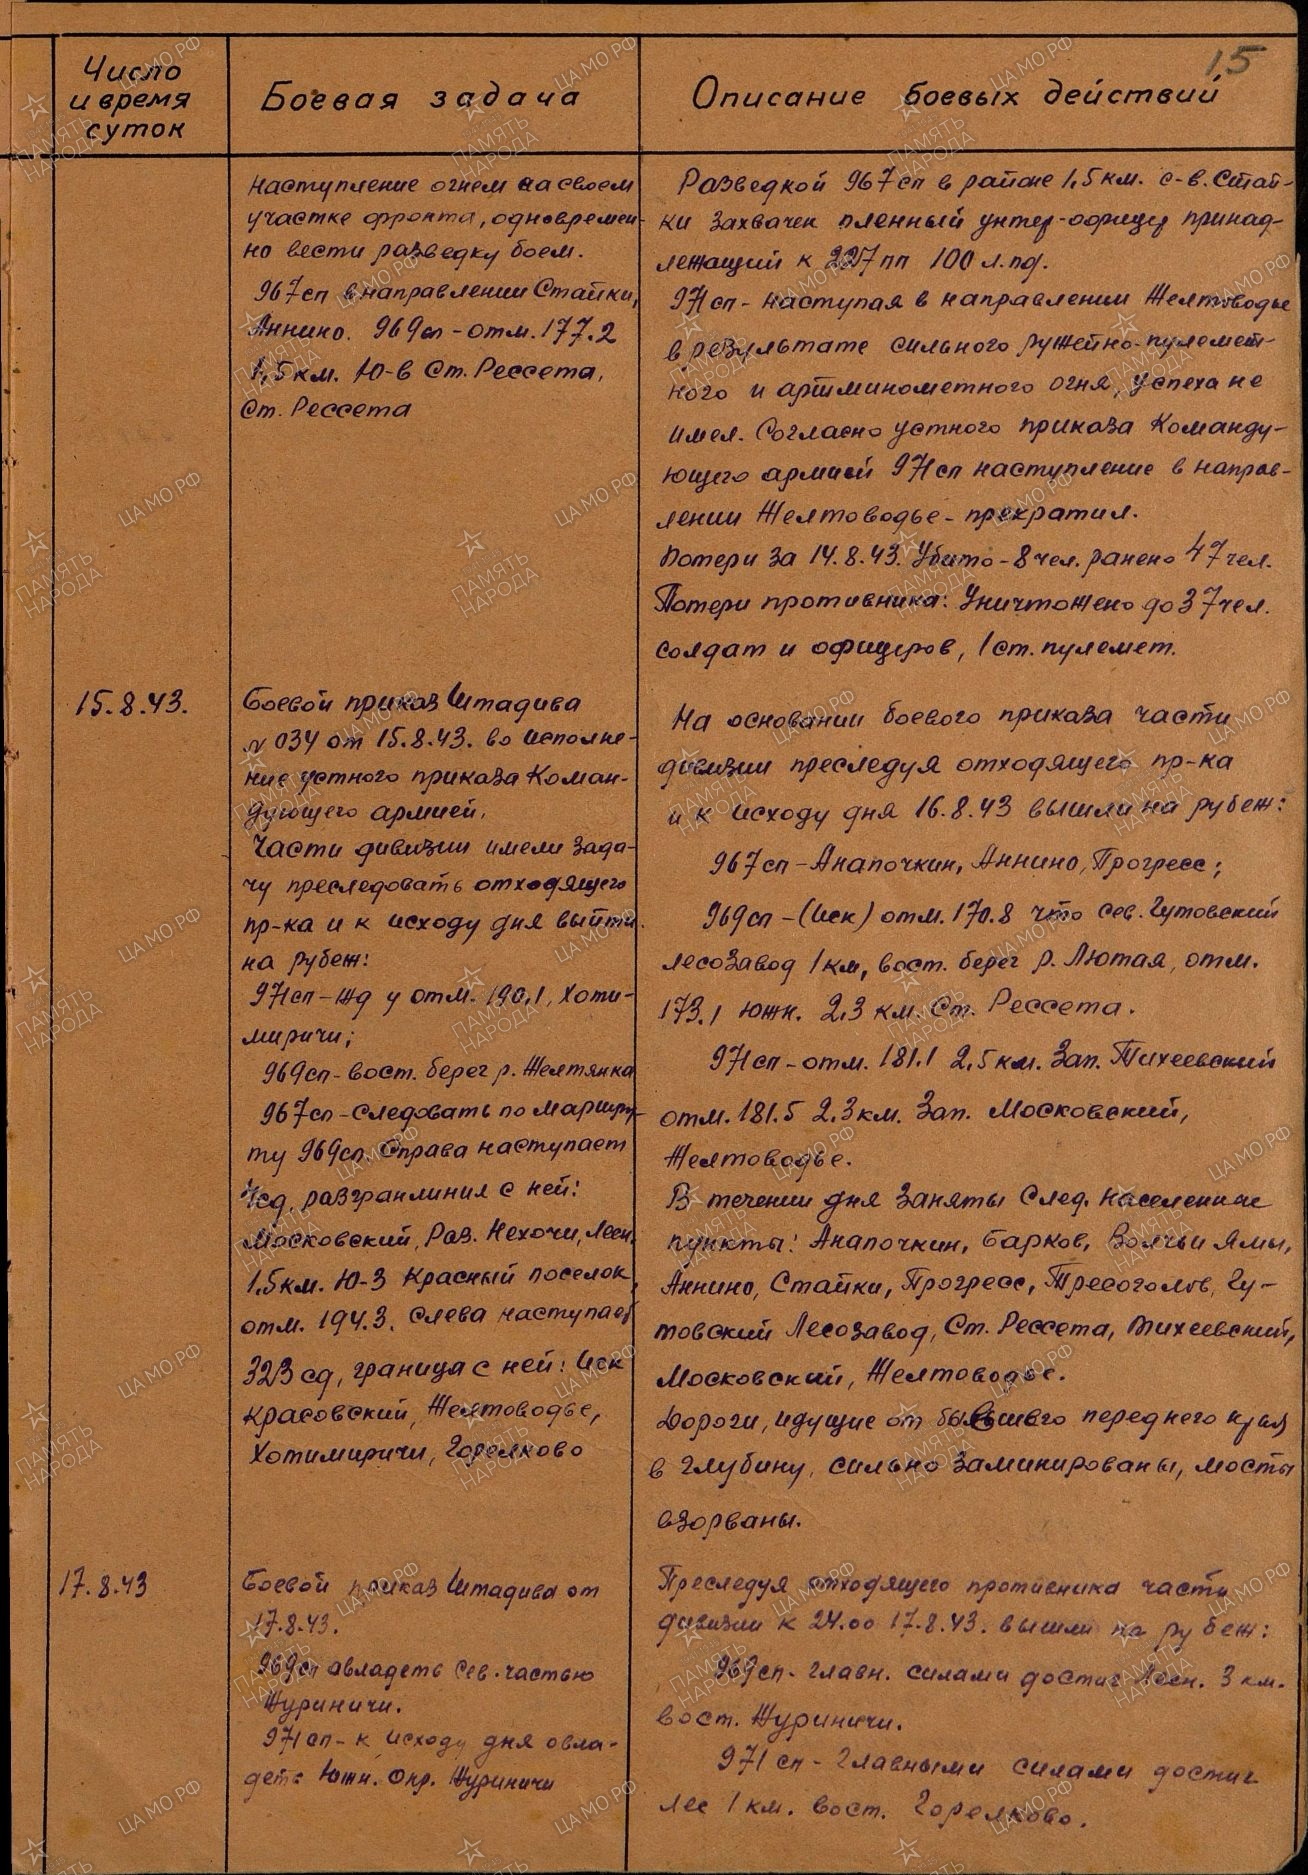 15
Число
и время
суток
Боевая задача
Описание боевых действий
наступление огнем на своем
участке фронта, одновремен-
но вести разведку боем.
967сп в направлении Стайки,
Аннино. 969сп - отм. 177.2
1,5 км. Ю-в Ст. Рессета,
Ст. Рессета
Разведкой 967сп в районе 1,5 км. с-в. Стай-
ки захвачен пленный унтер-офицер принад-
лежащий к 227пп 100 л.пд.
971сп - наступая в направлении Желтоводье
в результате сильного ружейно-пулемет-
ного и артминометного огня, успеха не
имел. Согласно устного приказа Команду-
ющего армией 971сп наступление в направ-
лении Желтоводье - прекратил.
Потери за 14.8.43. Убито - 8 чел. ранено 47 чел.
Потери противника: Уничтожено до 37 чел.
солдат и офицеров, 1 ст. пулемет.
15.8.43.
Боевой приказ Штадива
№ 034 от 15.8.43. во исполне-
ние устного приказа Коман-
дующего армией.
Части дивизии имели зада-
чу преследовать отходящего
пр-ка и к исходу дня выйти
на рубеж:
971сп - жд у отм. 190.1, Хоти-
миричи;
969сп - вост. берег р. Желтянка
967сп - следовать по маршру-
ту 969сп. Справа наступает
4сд, разгранлиния с ней:
Московский, Раз. Нехочи, Лесн.
1,5 км. Ю-З Красный поселок,
отм. 194.3. Слева наступает
323 сд, граница с ней: Иск
Красовский, Желтоводье,
Хотимиричи, Горелково
На основании боевого приказа части
дивизии преследуя отходящего пр-ка
и к исходу дня 16.8.43 вышли на рубеж:
967сп - Анапочкин, Аннино, Прогресс;
969сп - (Иск) отм. 170.8 что сев. Гутовский
лесозавод 1 км, вост. берег р. Лютая, отм.
173.1 южн. 2,3 км. Ст. Рессета.
971сп - отм. 181.1 2,5 км. Зап. Тихеевский
отм. 181.5 2.3 км. Зап. Московский,
Желтоводье.
В течении дня заняты след. населенные
пункты: Анапочкин, Барков, Волчьи Ямы,
Аннино, Стайки, Прогресс, Тресоголов, Гу-
товский Лесозавод, Ст. Рессета, Тихеевский,
Московский, Желтоводье.
Дороги, идущие от бывшего переднего края
в глубину, сильно заминированы, мосты
взорваны.
17.8.43
Боевой приказ Штадива от
17.8.43.
969сп овладеть Сев. частью
Журиничи.
971сп - к исходу дня овла-
деть Южн. окр. Журиничи
Преследуя отходящего противника части
дивизии к 24.00 17.8.43. вышли на рубеж:
969сп - главн. силами достиг Лесн. 3 км.
вост. Журиничи.
971 сп - главными силами достиг
лес 1 км. вост. Горелково.